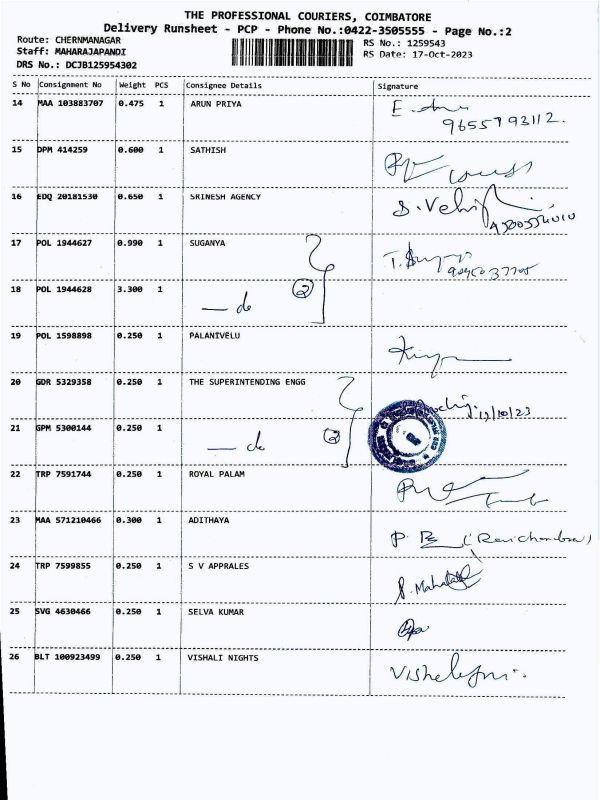 THE PROFESSIONAL COURIERS, COIMBATORE
Delivery Runsheet - PCP - Phone No.:0422-3505555 - Page No.:2
Route: CHERNMANAGAR
RS No.: 1259543
Staff: MAHARAJAPANDI
RS Date: 17-Oct-2023
DRS No.: DCJB125954302
S No Consignment No Weight PCS Consignee Details Signature
14 MAA 103883707 0.475 1 ARUN PRIYA
15 DPM 414259 0.600 1 SATHISH
16 EDQ 20181530 0.650 1 SRINESH AGENCY
17 POL 1944627 0.990 1 SUGANYA
18 POL 1944628 3.300 1 — do 2
19 POL 1598898 0.250 1 PALANIVELU
20 GDR 5329358 0.250 1 THE SUPERINTENDING ENGG
21 GPM 5300144 0.250 1 — do 2
22 TRP 7591744 0.250 1 ROYAL PALAM
23 MAA 571210466 0.300 1 ADITHAYA
24 TRP 7599855 0.250 1 S V APPRALES
25 SVG 4630466 0.250 1 SELVA KUMAR
26 BLT 100923499 0.250 1 VISHALI NIGHTS